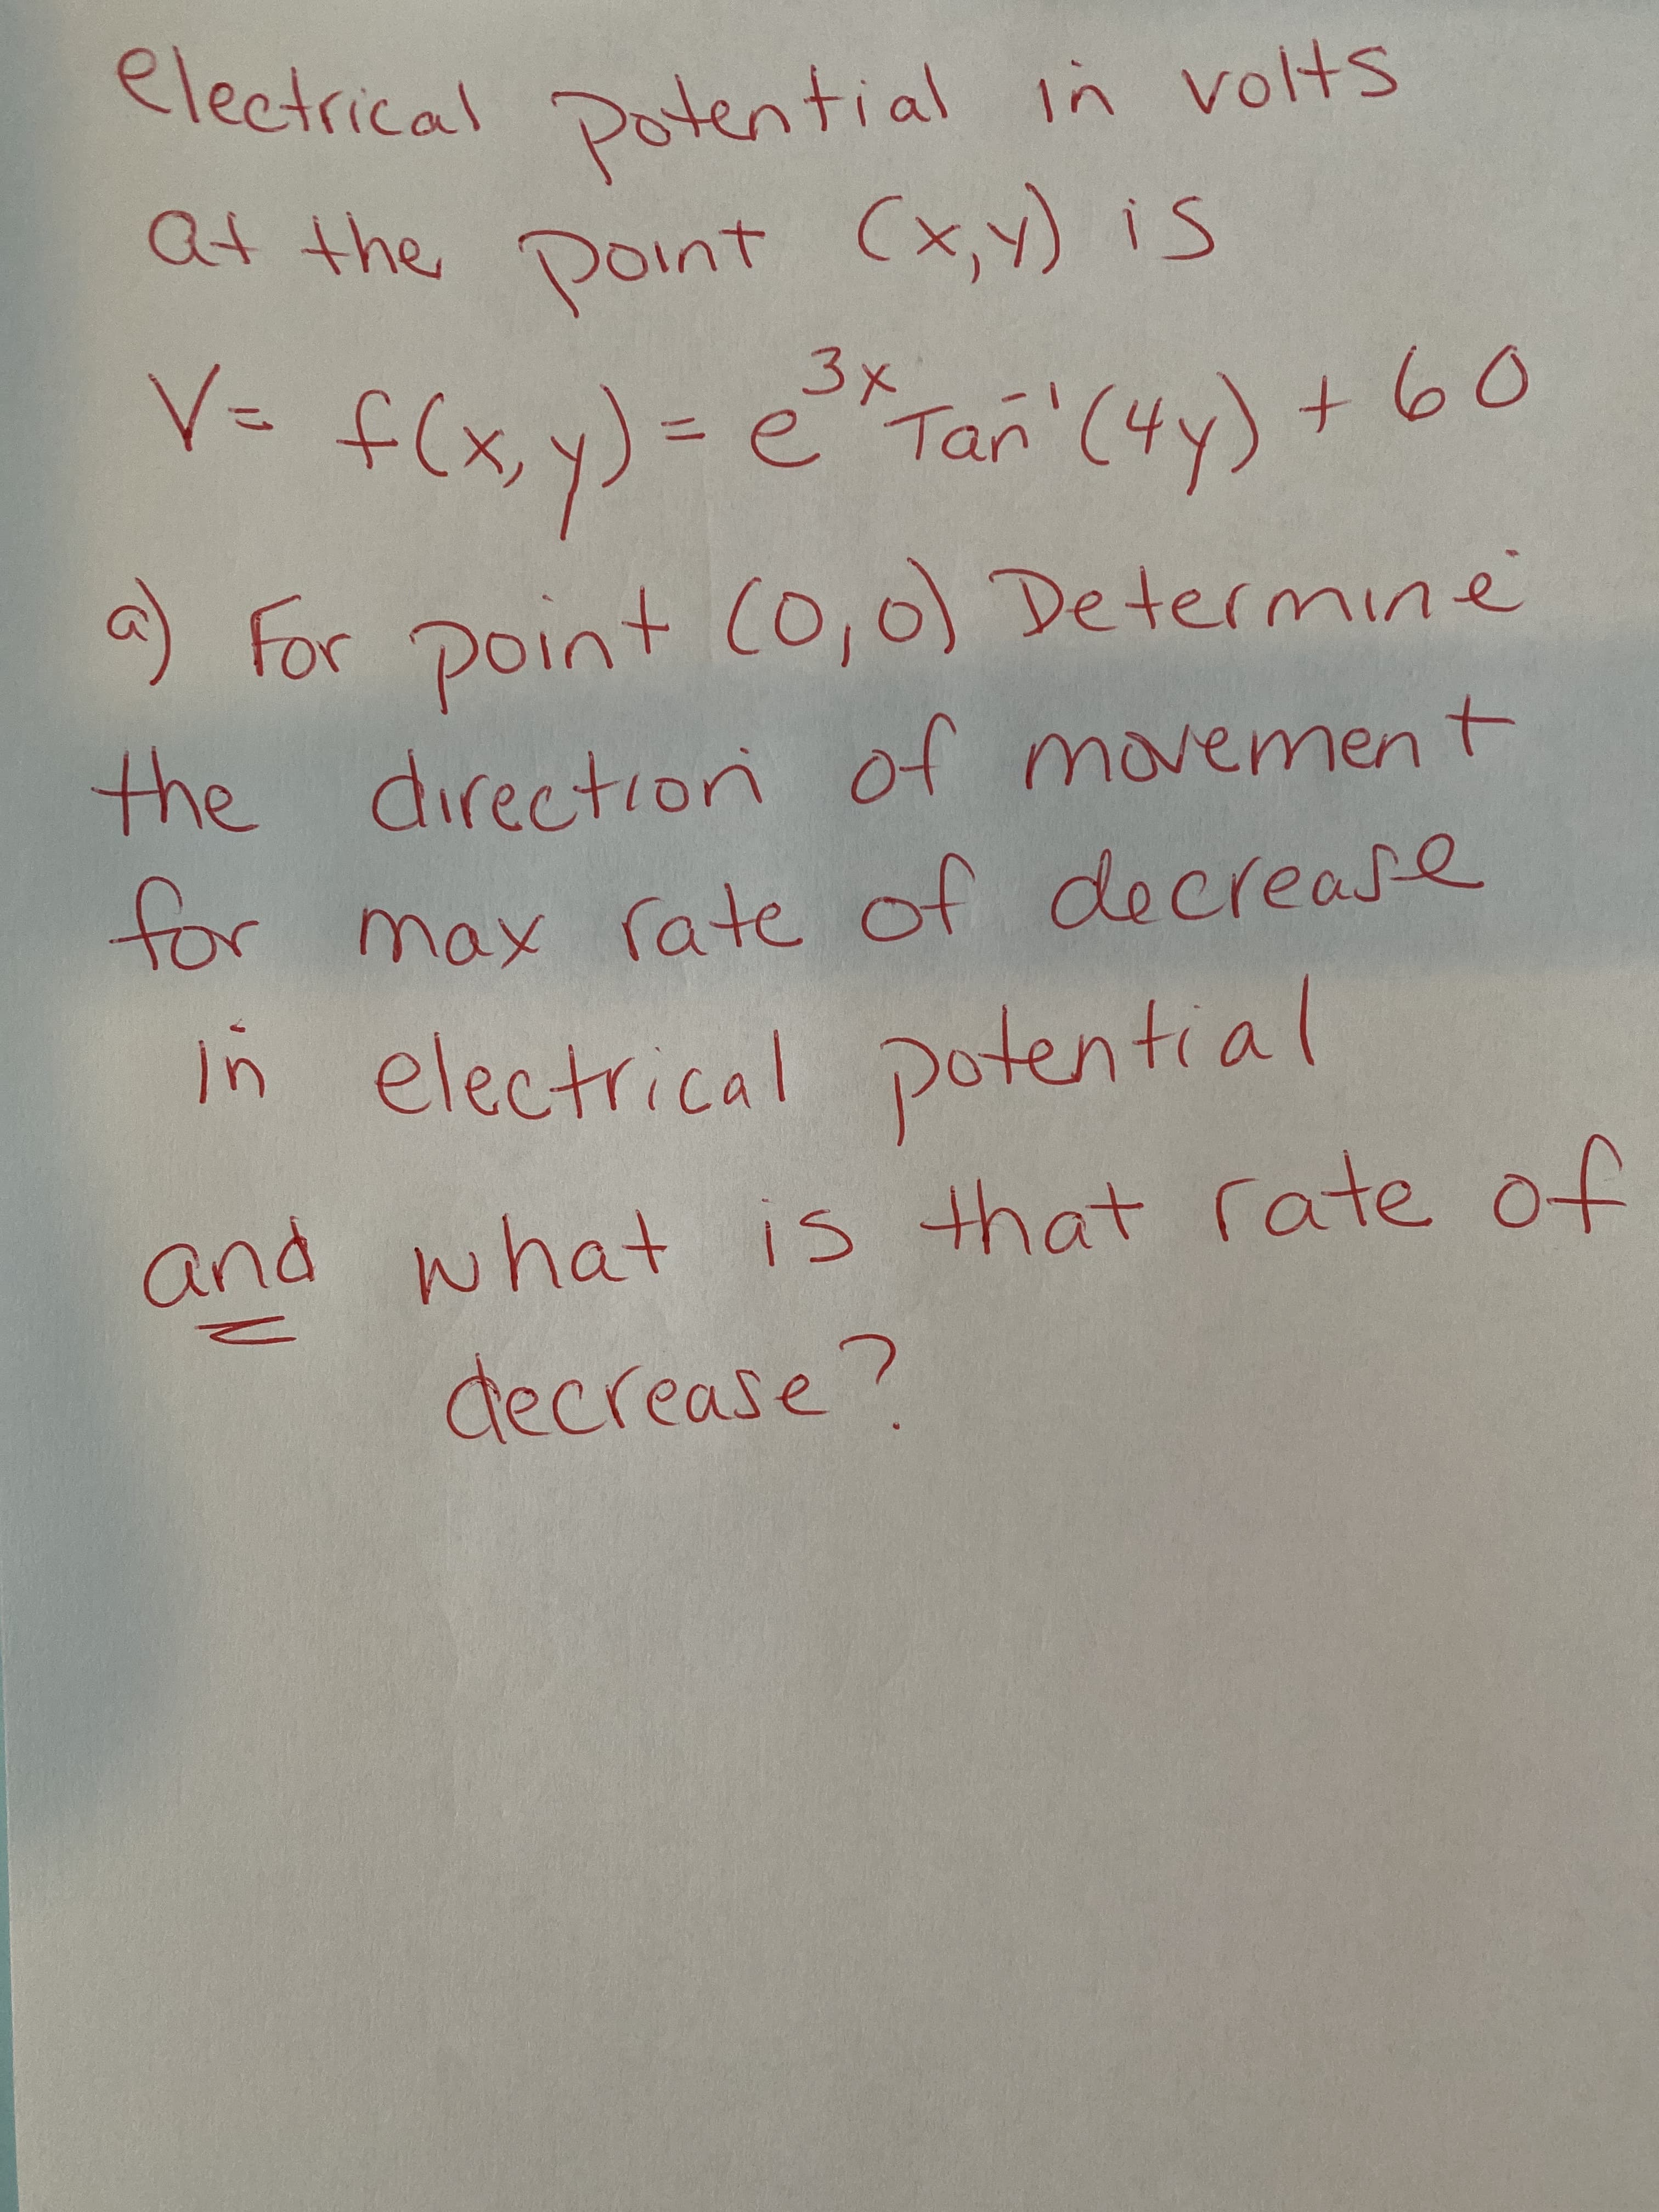 electrical potential in volts
at the point (x,y) is
V= f(x,y) = e^{3x} Tan^{-1}(4y) + 60
a) For point (0,0) Determine
the direction of movement
for max rate of decrease
in electrical potential
and what is that rate of
decrease?